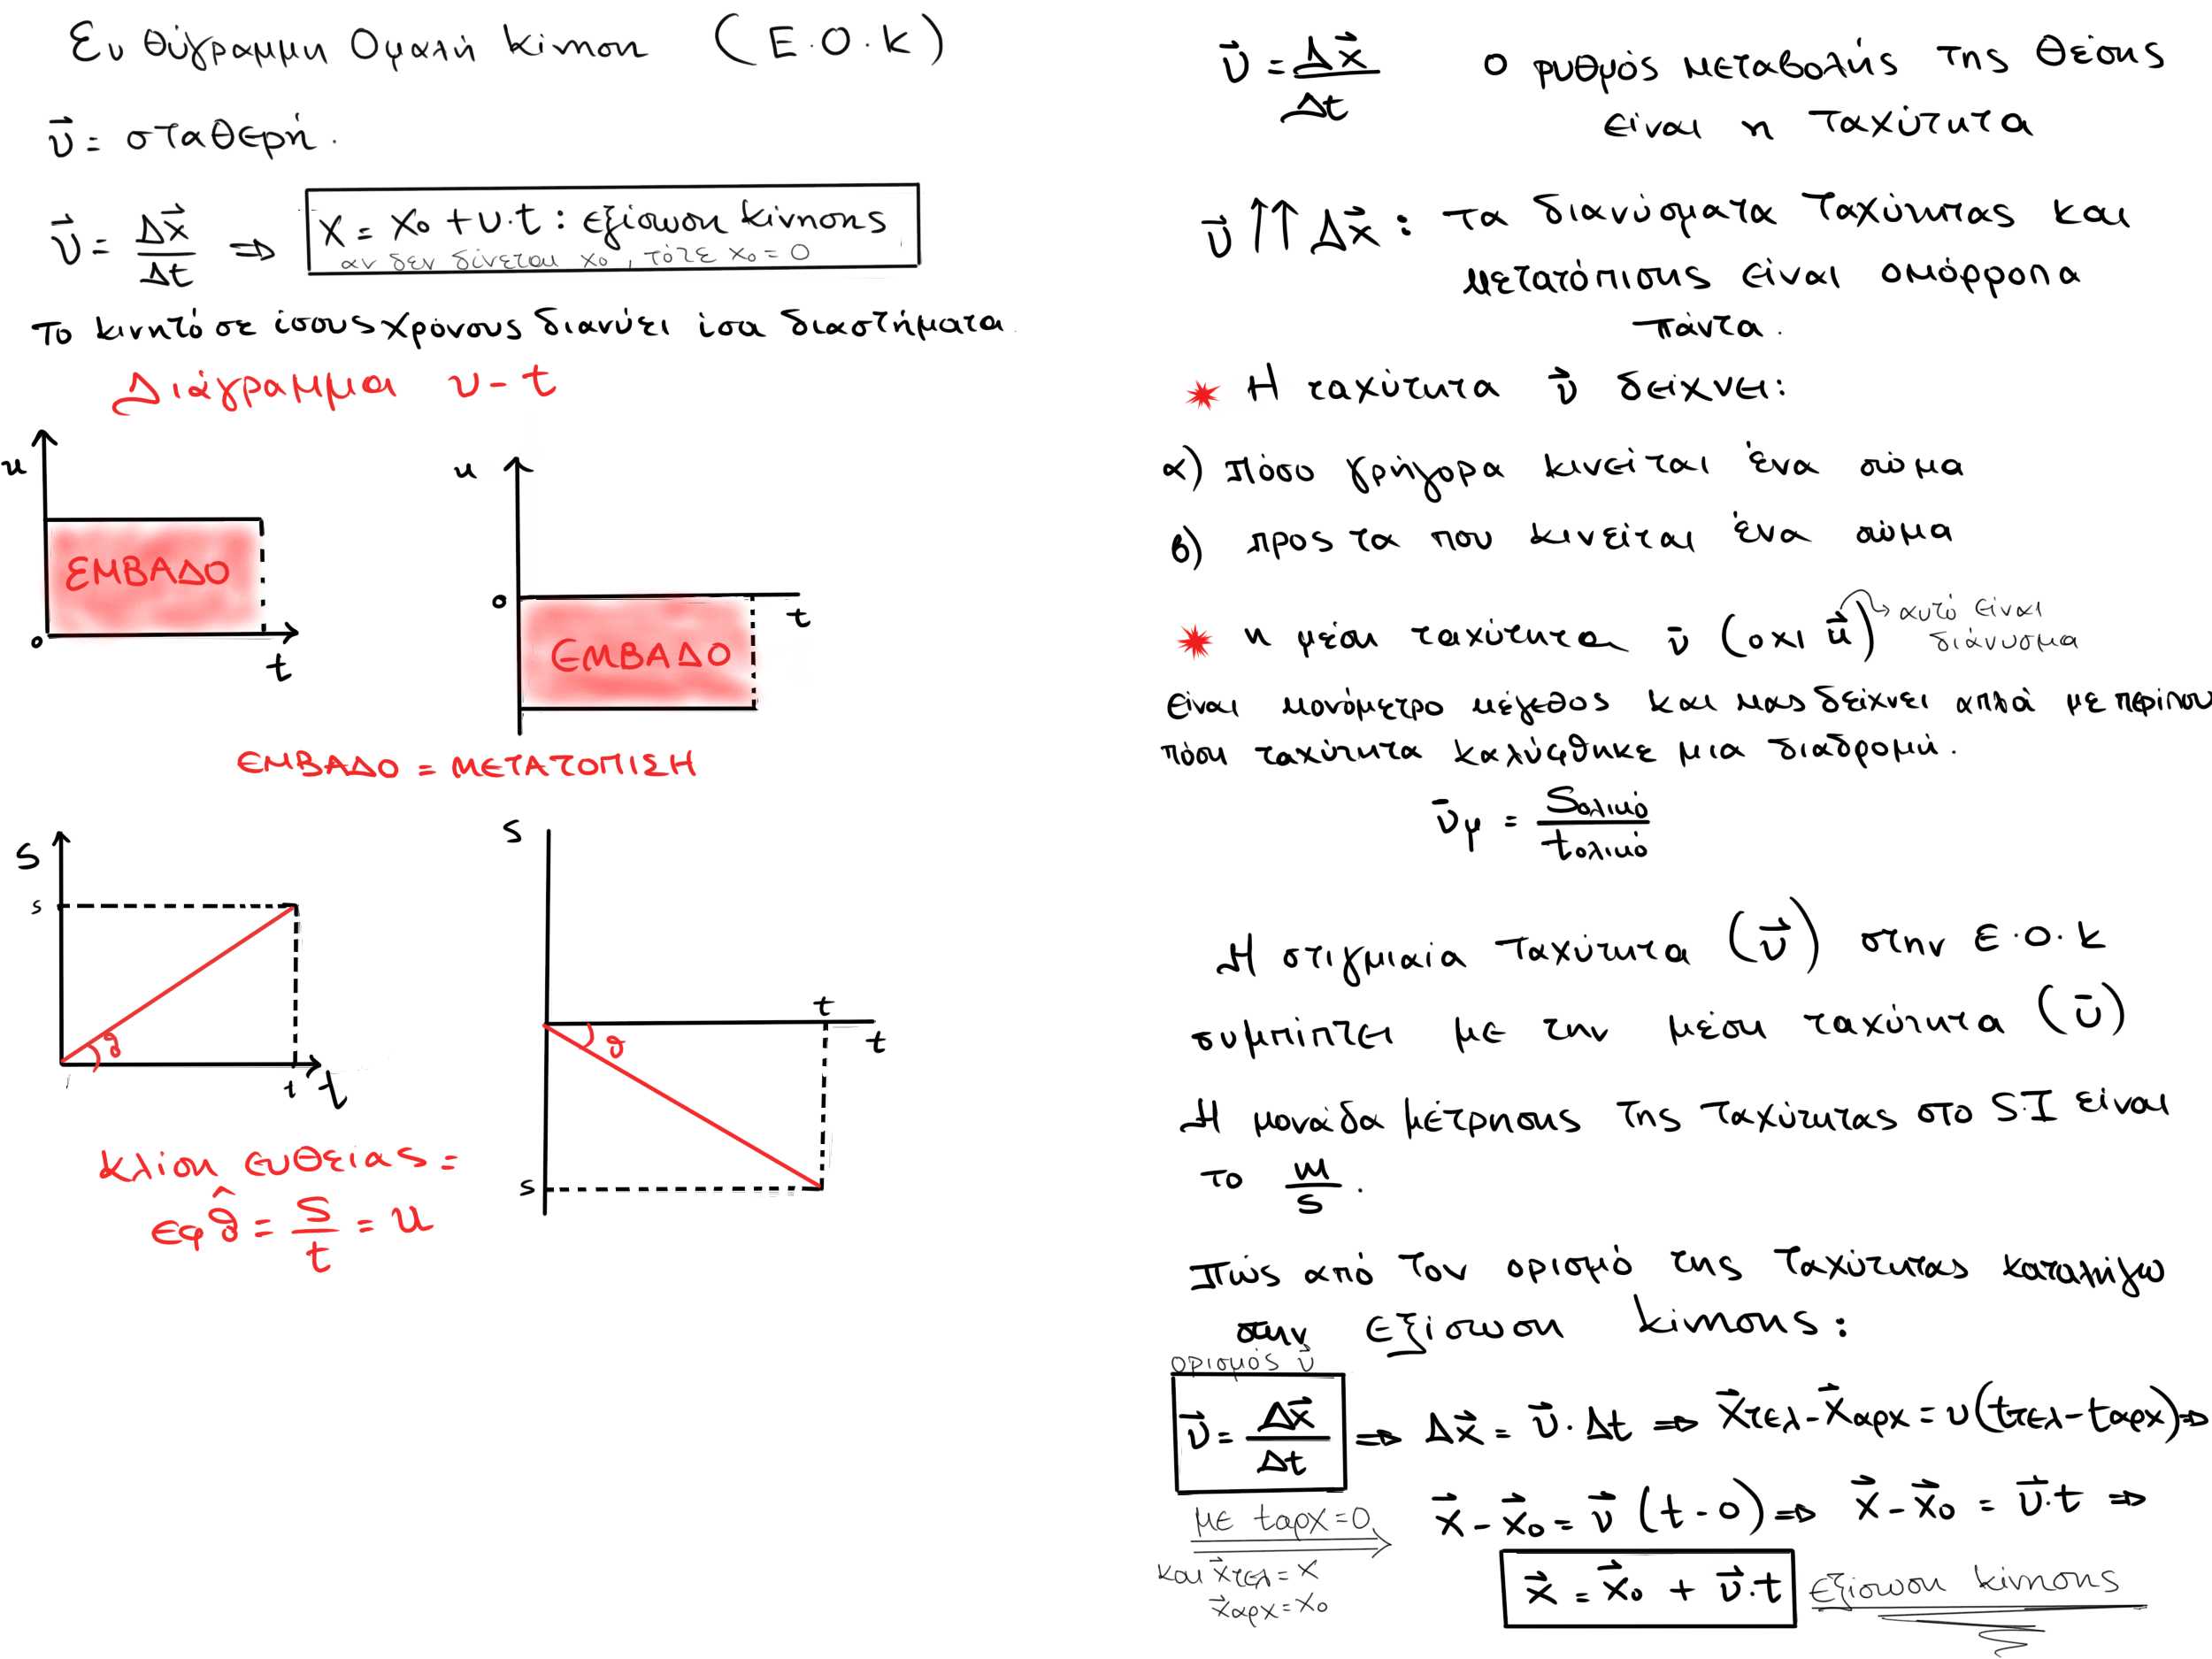 Ευθύγραμμη Ομαλή Κίνηση (Ε.Ο.Κ)
υ⃗ = σταθερή.
υ⃗ = Δx⃗/Δt ⇒ x = x₀ + υ·t : εξίσωση κίνησης
αν δεν δίνεται x₀, τότε x₀ = 0
Το κινητό σε ίσους χρόνους διανύει ίσα διαστήματα.
Διάγραμμα υ-t
u
ΕΜΒΑΔΟ
0
t
u
0
t
ΕΜΒΑΔΟ
ΕΜΒΑΔΟ = ΜΕΤΑΤΟΠΙΣΗ
S
s
θ
t
t
S
t
t
θ
s
κλίση ευθείας =
εφθ̂ = S/t = u
υ⃗ = Δx⃗/Δt ο ρυθμός μεταβολής της θέσης
είναι η ταχύτητα
υ⃗ ↑↑ Δx⃗ : τα διανύσματα ταχύτητας και
μετατόπισης είναι ομόρροπα
πάντα.
Η ταχύτητα υ⃗ δείχνει:
α) πόσο γρήγορα κινείται ένα σώμα
β) προς τα που κινείται ένα σώμα
η μέση ταχύτητα ῡ (οχι u⃗) → αυτό είναι
διάνυσμα
είναι μονόμετρο μέγεθος και μας δείχνει απλά με περίπου
πόση ταχύτητα καλύφθηκε μια διαδρομή.
ῡμ = Sολικό/tολικό
Η στιγμιαία ταχύτητα (υ⃗) στην Ε.Ο.Κ
συμπίπτει με την μέση ταχύτητα (ῡ)
Η μονάδα μέτρησης της ταχύτητας στο S.I είναι
το m/s.
Πώς από τον ορισμό της ταχύτητας καταλήγω
στην εξίσωση κίνησης:
ορισμός υ⃗
υ⃗ = Δx⃗/Δt ⇒ Δx⃗ = υ⃗·Δt ⇒ x⃗τελ - x⃗αρχ = υ(tτελ - tαρχ) ⇒
με tαρχ = 0,
και x⃗τελ = x
x⃗αρχ = x₀
x⃗ - x⃗₀ = υ⃗ (t - 0) ⇒ x⃗ - x⃗₀ = υ⃗·t ⇒
x⃗ = x⃗₀ + υ⃗·t εξίσωση κίνησης